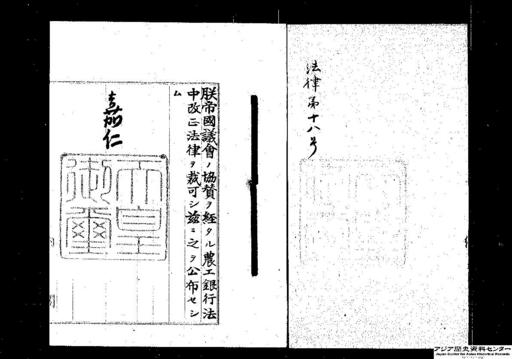 法律第十八号
朕帝國議會ノ協賛ヲ經タル農工銀行法
中改正法律ヲ裁可シ玆ニ之ヲ公布セシ
ム
嘉仁
天皇
御璽
アジア歴史資料センター
Japan Center for Asian Historical Records